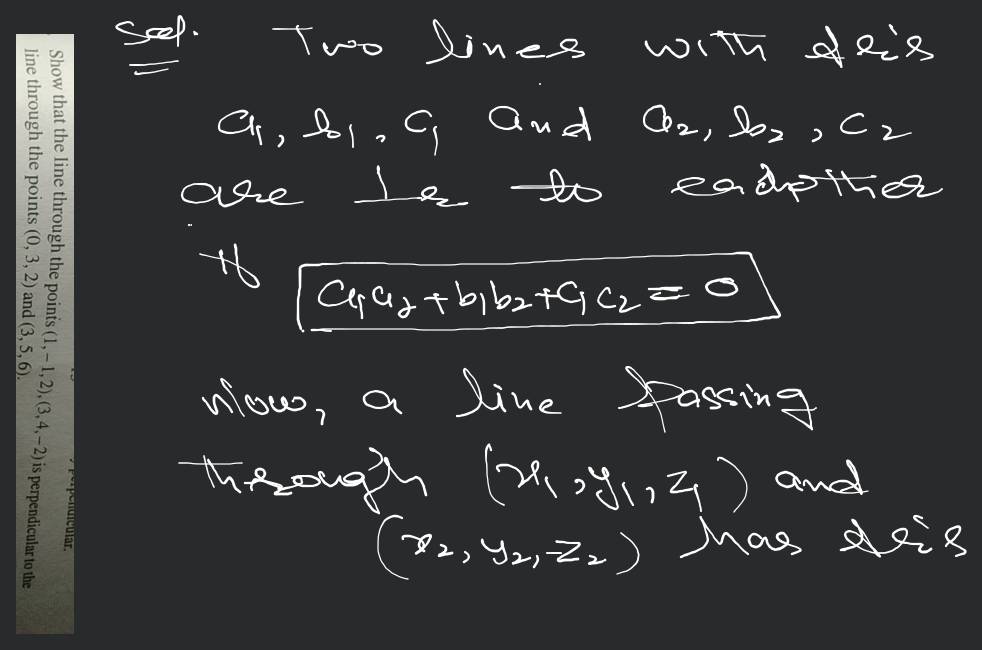 Show that the line through the points (1, – 1, 2), (3, 4, – 2) is perpendicular to the
line through the points (0, 3, 2) and (3, 5, 6).
Sol. Two lines with dr's
a₁, b₁, c₁ and a₂, b₂, c₂
are ⊥r to each other
if
a₁a₂+b₁b₂+c₁c₂=0
Now, a line passing
through (x₁, y₁, z₁) and
(x₂, y₂, z₂) has dr's